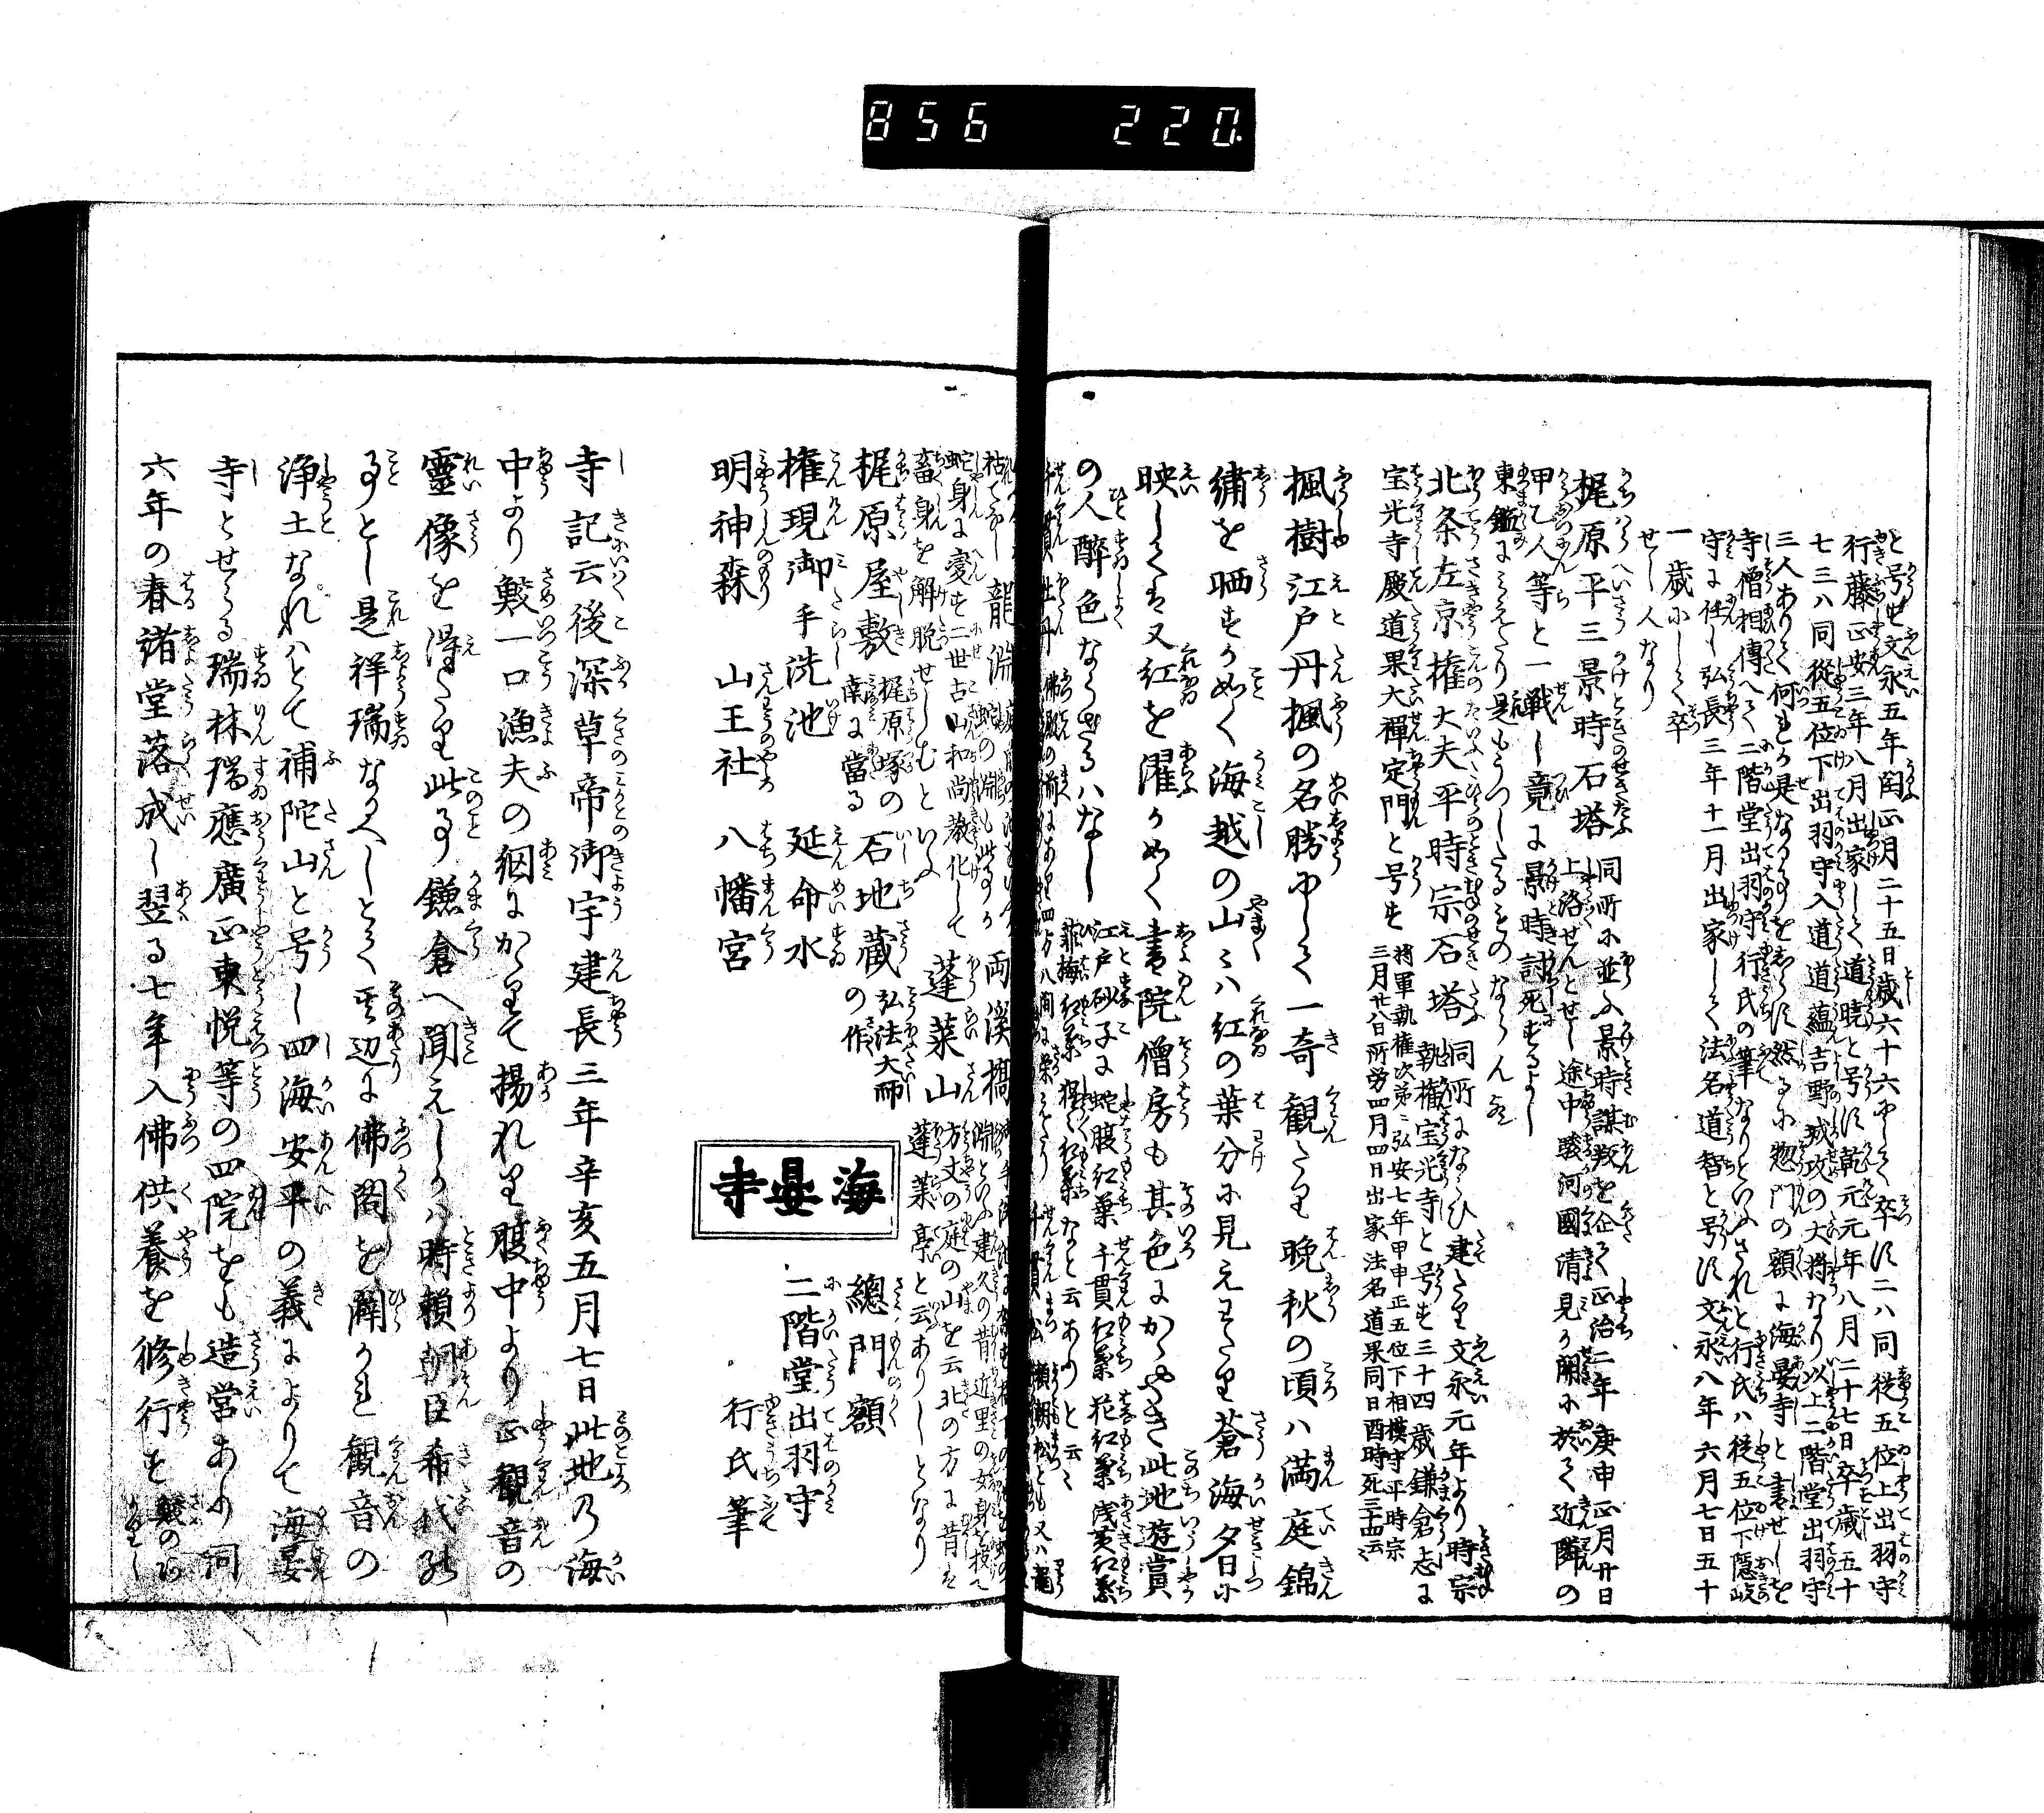 856 220
と号す文永五年閏正月二十五日歳六十六にして卒す二八同従五位上出羽守
行藤正安三年八月出家して道暁と号す乾元元年八月二十七日卒歳五十
七三八同従五位下出羽守入道道蘊吉野城攻の大将なり以上二階堂出羽守
三人ありて何れか是なる事をしらす然るに惣門の額に海晏寺と書せしを
寺僧相傳へて二階堂出羽守行氏の筆なりといふされと行氏ハ従五位下隠岐
守に任し弘長三年十一月出家して法名道智と号す文永八年六月七日五十
一歳にして卒
せし人なり
梶原平三景時石塔 同所に並ふ景時謀叛を企て正治二年庚申正月廿日
上洛せんとせし途中駿河國清見か関に於て近隣の
甲乙人等と一戦し竟に景時討死するよし
東鑑にみえたり是もうつしたるものならん
北条左京権大夫平時宗石塔 同所にならひ建たり文永元年より時宗
執権宝光寺と号す三十四歳鎌倉志に
宝光寺殿道果大禪定門と号す 将軍執権次第ニ弘安七年甲申正五位下相模守平時宗
三月廿八日所労四月四日出家法名道果同日酉時死三十四云々
楓樹江戸丹楓の名勝にして一奇観たり晩秋の頃ハ満庭錦
繍を晒すか如く海越の山々ハ紅の葉分に見えわたり蒼海夕日に
映しては又紅を濯かめく書院僧房も其色にかゝやき此地遊賞
の人醉色ならさるハなし 江戸砂子に蛇腹紅葉千貫紅葉花紅葉浅黄紅葉
緋梅紅葉猩々紅葉なと云ありと云々
千貫牡丹 佛殿の前にあり四方八間に榮えたり 千貫松 頼朝松とも又ハ龍
枯てなし 龍淵 両溪橋
蛇身に変す二世古山和尚教化して
畜身を解脱せしむといふ 蓬莱山 方丈の庭の山を云北の方に昔は
蓬莱亭と云ありしとなり
梶原屋敷 梶原塚の
南に當る 石地蔵 弘法大師
の作 總門額
権現御手洗池 延命水 二階堂出羽守
明神森 山王社 八幡宮 行氏筆
海晏寺
寺記云後深草帝御宇建長三年辛亥五月七日此地乃海
中より鮫一口漁夫の網にかゝりて揚れり腹中より正観音の
靈像を得たり此事鎌倉へ聞えしかハ時頼朝臣希代の
事とし是祥瑞なるへしとて其辺に佛閣を闢かれ観音の
浄土なれハとて補陀山と号し四海安平の義によりて海晏
寺とせらる瑞林瑞應廣正東悦等の四院をも造営あり同
六年の春諸堂落成し翌る七年入佛供養を修行す